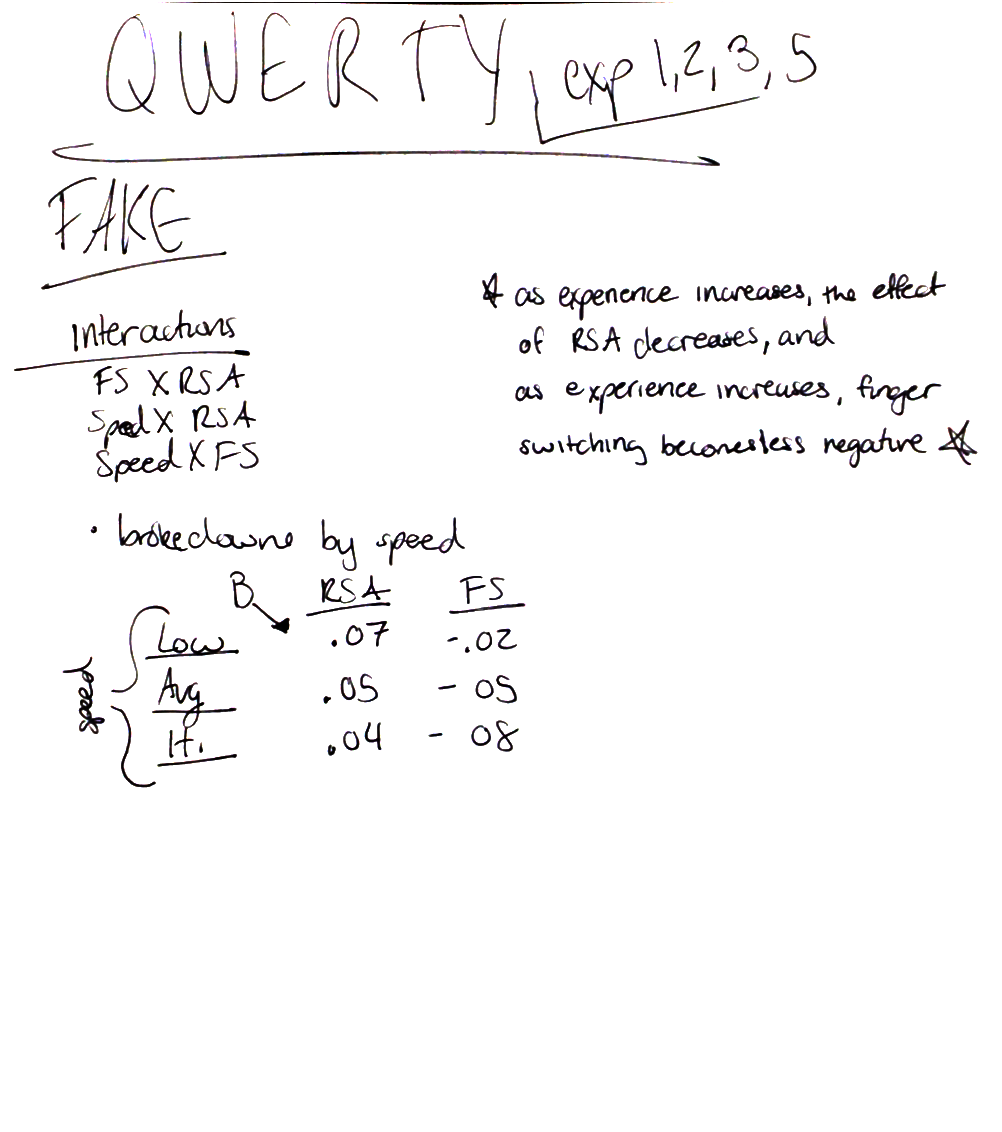 QWERTY exp 1,2,3,5
FAKE
Interactions
FS X RSA
Sped X RSA
Speed X FS
* as experience increases, the effect
of RSA decreases, and
as experience increases, finger
switching becomes less negative *
• brokedowne by speed
B RSA FS
speed
Low .07 -.02
Avg .05 - 05
Hi. .04 - 08